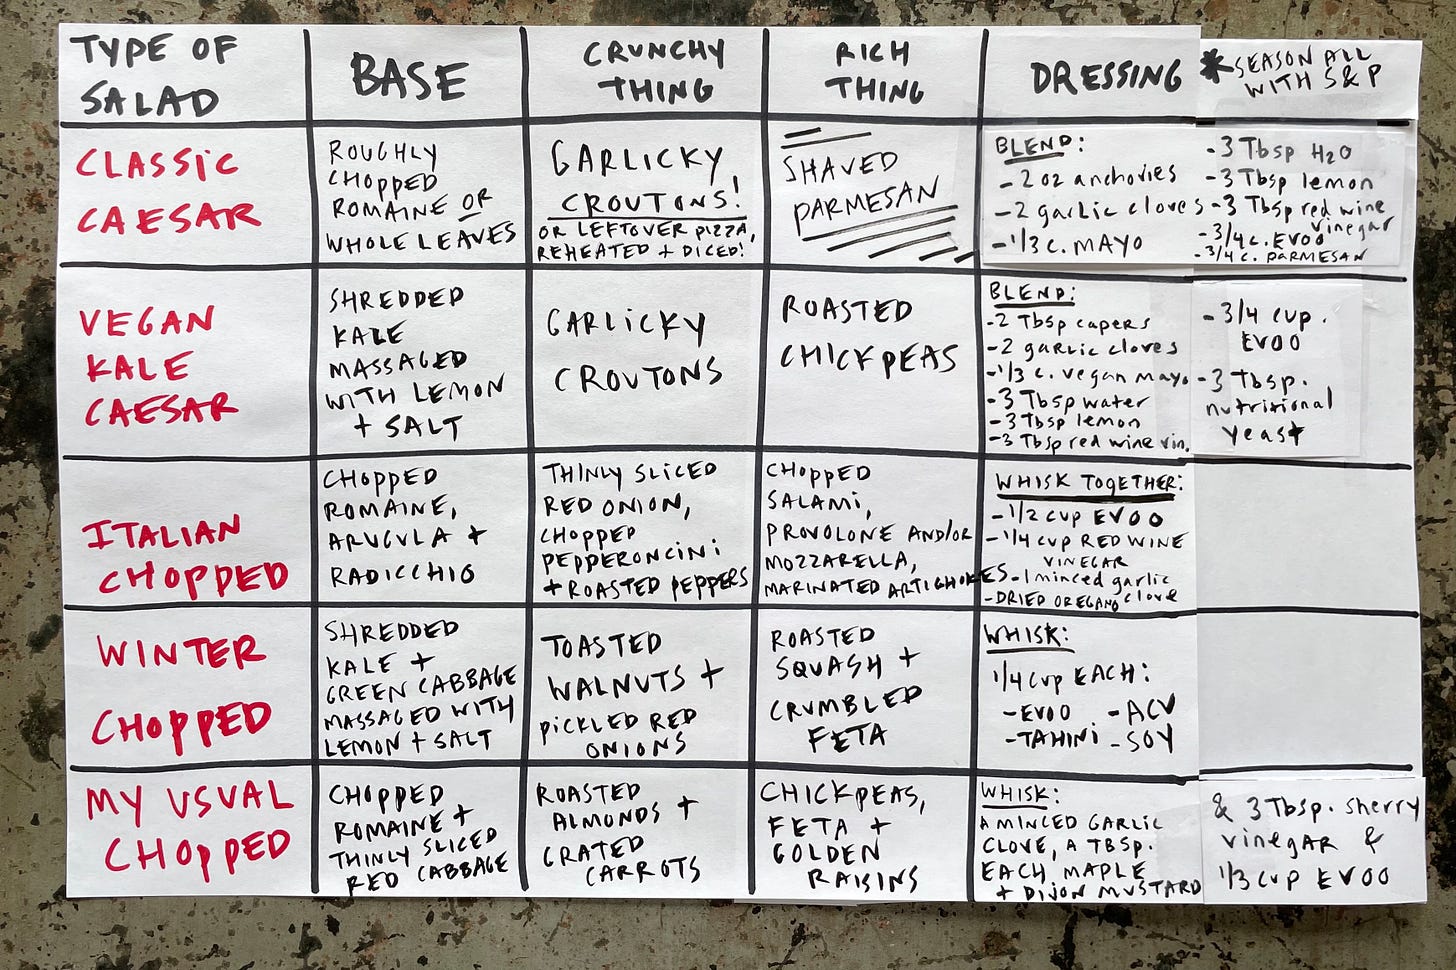 TYPE OF
SALAD
BASE
CRUNCHY
THING
RICH
THING
DRESSING
*SEASON ALL
WITH S&P
CLASSIC
CAESAR
ROUGHLY
CHOPPED
ROMAINE OR
WHOLE LEAVES
GARLICKY
CROUTONS!
OR LEFTOVER PIZZA,
REHEATED + DICED!
SHAVED
PARMESAN
BLEND:
- 2 oz anchovies
- 2 garlic cloves
- 1/3 c. MAYO
- 3 Tbsp H2O
- 3 Tbsp lemon
- 3 Tbsp red wine
vinegar
- 3/4 c. EVOO
- 3/4 c. PARMESAN
VEGAN
KALE
CAESAR
SHREDDED
KALE
MASSAGED
WITH LEMON
+ SALT
GARLICKY
CROUTONS
ROASTED
CHICKPEAS
BLEND:
- 2 Tbsp capers
- 2 garlic cloves
- 1/3 c. vegan mayo
- 3 Tbsp water
- 3 Tbsp lemon
- 3 Tbsp red wine vin.
- 3/4 cup.
EVOO
- 3 Tbsp.
nutritional
yeast
ITALIAN
CHOPPED
CHOPPED
ROMAINE,
ARUGULA +
RADICCHIO
THINLY SLICED
RED ONION,
CHOPPED
PEPPERONCINI
+ ROASTED PEPPERS
CHOPPED
SALAMI,
PROVOLONE AND/OR
MOZZARELLA,
MARINATED ARTICHOKES
WHISK TOGETHER:
- 1/2 CUP EVOO
- 1/4 CUP RED WINE
VINEGAR
- 1 minced garlic
clove
- DRIED OREGANO
WINTER
CHOPPED
SHREDDED
KALE +
GREEN CABBAGE
MASSAGED WITH
LEMON + SALT
TOASTED
WALNUTS +
PICKLED RED
ONIONS
ROASTED
SQUASH +
CRUMBLED
FETA
WHISK:
1/4 CUP EACH:
- EVOO - ACV
- TAHINI - SOY
MY USUAL
CHOPPED
CHOPPED
ROMAINE +
THINLY SLICED
RED CABBAGE
ROASTED
ALMONDS +
GRATED
CARROTS
CHICKPEAS,
FETA +
GOLDEN
RAISINS
WHISK:
A MINCED GARLIC
CLOVE, A TBSP.
EACH, MAPLE
+ DIJON MUSTARD
& 3 Tbsp. sherry
vinegar &
1/3 cup EVOO